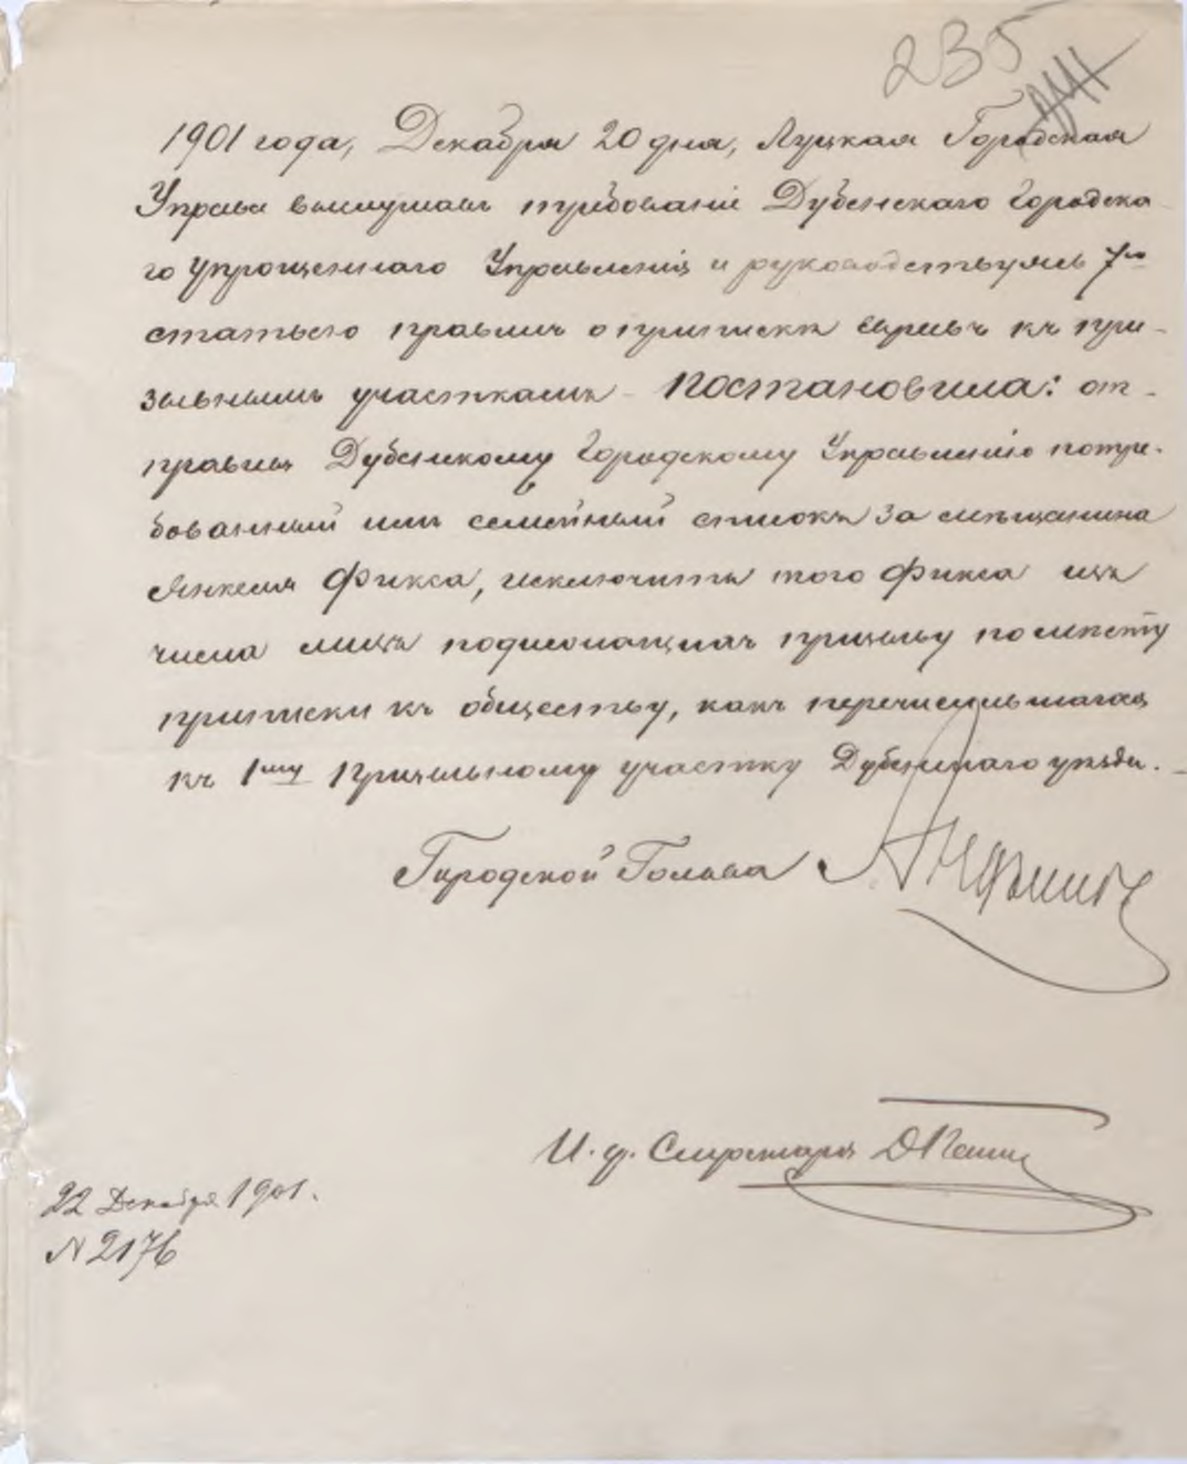 235
1901 года, Декабря 20 дня, Луцкая Городская
Управа выслушавъ требованіе Дубенскаго Городска-
го Упрощеннаго Управленія и руководствуясь 7ю
статьею правилъ о припискѣ евреевъ къ при-
зывнымъ участкамъ – постановила: от-
правивъ Дубенскому Городскому Управленію потре-
бованный имъ семейный списокъ за мѣщанина
Янкеля Фикса, исключить того Фикса изъ
числа лицъ подлежащихъ призыву по мѣсту
приписки къ обществу, какъ перечислившагося
къ 1му призывному участку Дубенскаго уѣзда. –
Городской Голова
И. д. Секретаря
22 Декабря 1901.
N 2176